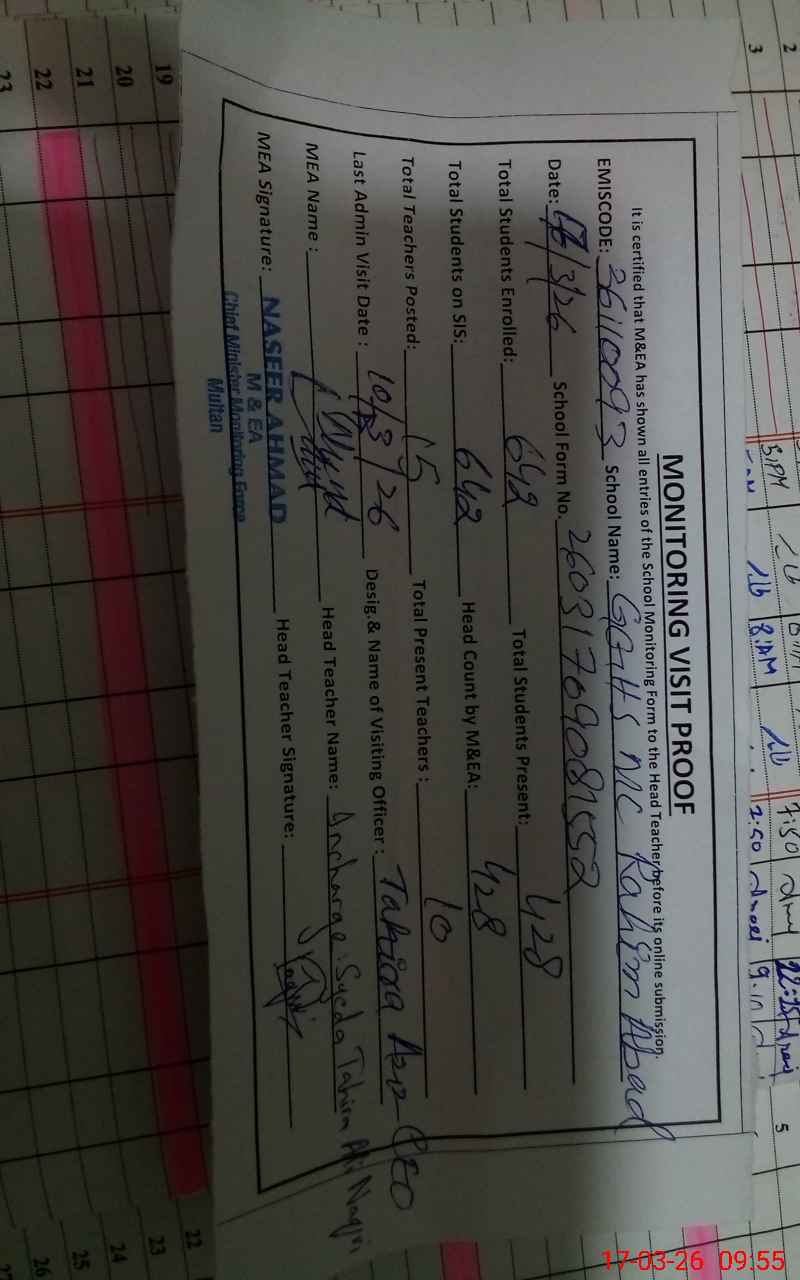 MONITORING VISIT PROOF
It is certified that M&EA has shown all entries of the School Monitoring Form to the Head Teacher before its online submission.
EMISCODE: 36110093 School Name: GGHS MC Rahim Abad
Date: 17/3/26 School Form No. 260317090815552
Total Students Enrolled: 642 Total Students Present: 428
Total Students on SIS: 642 Head Count by M&EA: 428
Total Teachers Posted: 15 Total Present Teachers : 10
Last Admin Visit Date : 10/3/26 Desig.& Name of Visiting Officer : Tahira CEO
MEA Name : Head Teacher Name: Incharge: Syeda Tahira Naqvi
MEA Signature: Head Teacher Signature: Naqvi
NASEER AHMAD
M & EA
Chief Minister Monitoring Force
Multan
2
3
5
31PM
8:AM
7:50
2:50
19
20
21
22
23
22
23
24
25
26
17-03-26 09:55